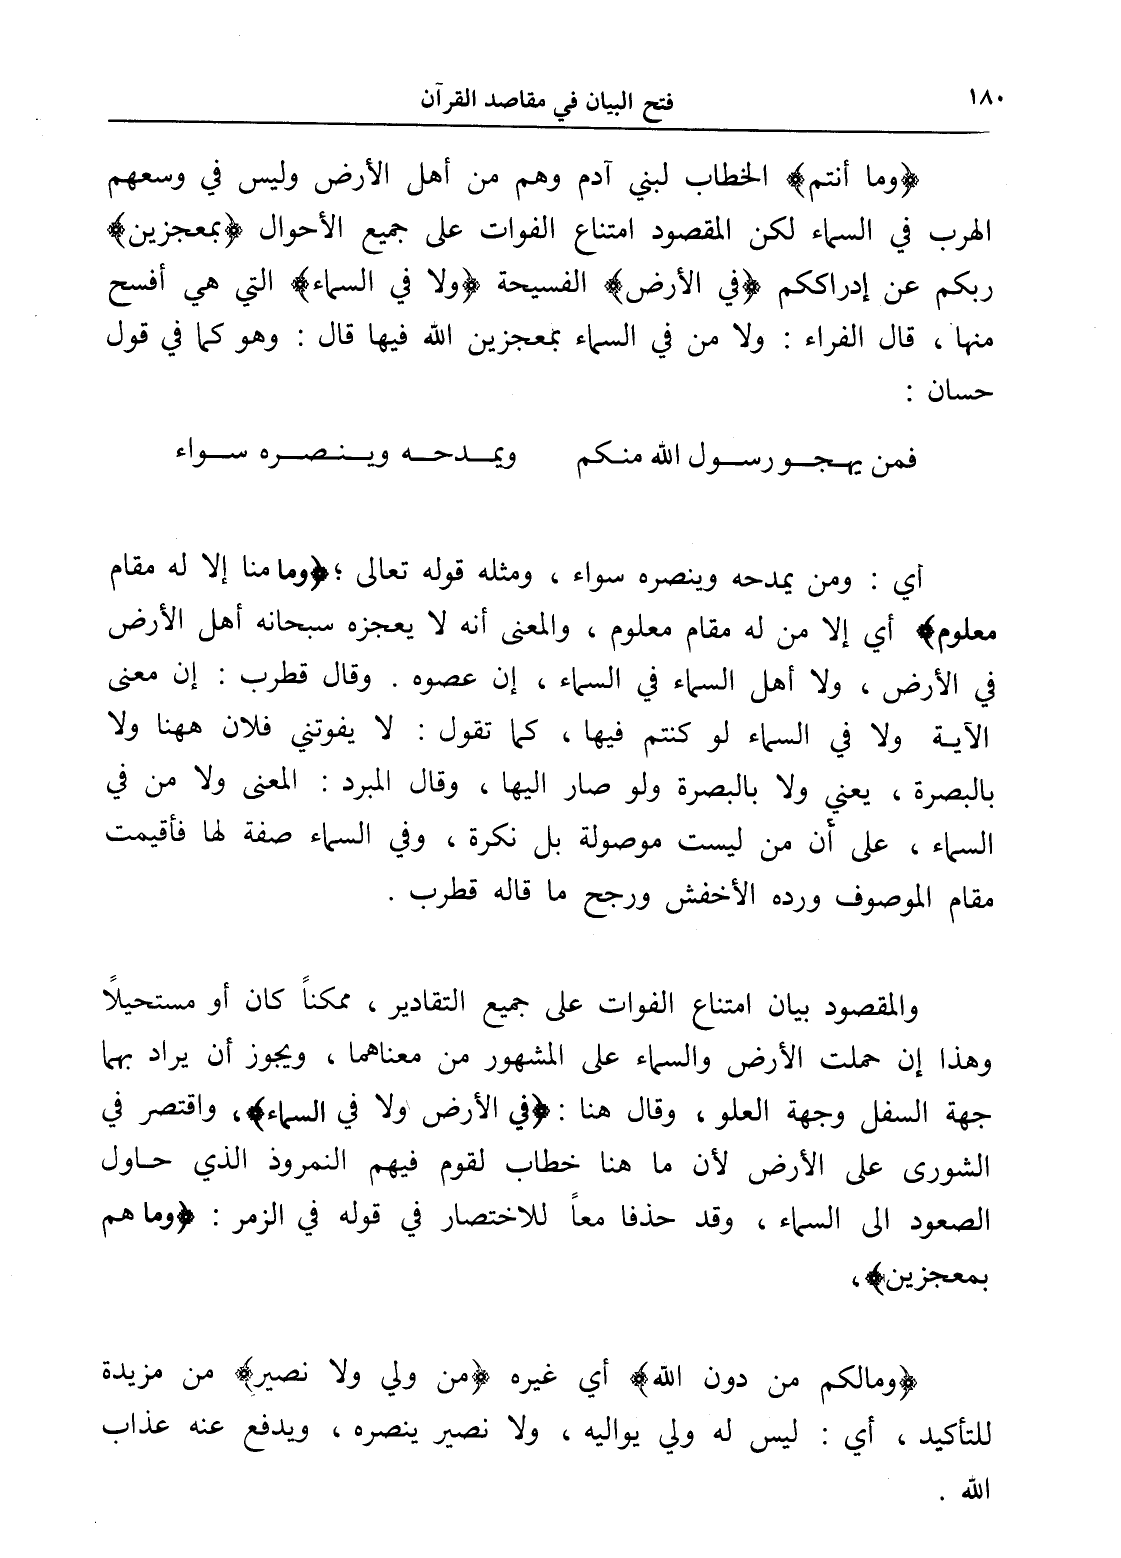 ١٨٠ فتح البيان في مقاصد القرآن
﴿وما أنتم﴾ الخطاب لبني آدم وهم من أهل الأرض وليس في وسعهم
الهرب في السماء لكن المقصود امتناع الفوات على جميع الأحوال ﴿بمعجزين﴾
ربكم عن إدراككم ﴿في الأرض﴾ الفسيحة ﴿ولا في السماء﴾ التي هي أفسح
منها ، قال الفراء : ولا من في السماء بمعجزين الله فيها قال : وهو كما في قول
حسان :
فمن يهجو رسول الله منكم ويمدحه وينصره سواء
أي : ومن يمدحه وينصره سواء ، ومثله قوله تعالى ؛ ﴿وما منا إلا له مقام
معلوم﴾ أي إلا من له مقام معلوم ، والمعنى أنه لا يعجزه سبحانه أهل الأرض
في الأرض ، ولا أهل السماء في السماء ، إن عصوه . وقال قطرب : إن معنى
الآية ولا في السماء لو كنتم فيها ، كما تقول : لا يفوتني فلان ههنا ولا
بالبصرة ، يعني ولا بالبصرة ولو صار اليها ، وقال المبرد : المعنى ولا من في
السماء ، على أن من ليست موصولة بل نكرة ، وفي السماء صفة لها فأقيمت
مقام الموصوف ورده الأخفش ورجح ما قاله قطرب .
والمقصود بيان امتناع الفوات على جميع التقادير ، ممكناً كان أو مستحيلاً
وهذا إن حملت الأرض والسماء على المشهور من معناهما ، ويجوز أن يراد بهما
جهة السفل وجهة العلو ، وقال هنا : ﴿في الأرض ولا في السماء﴾، واقتصر في
الشورى على الأرض لأن ما هنا خطاب لقوم فيهم النمروذ الذي حاول
الصعود الى السماء ، وقد حذفا معاً للاختصار في قوله في الزمر : ﴿وما هم
بمعجزين﴾،
﴿ومالكم من دون الله﴾ أي غيره ﴿من ولي ولا نصير﴾ من مزيدة
للتأكيد ، أي : ليس له ولي يواليه ، ولا نصير ينصره ، ويدفع عنه عذاب
الله .